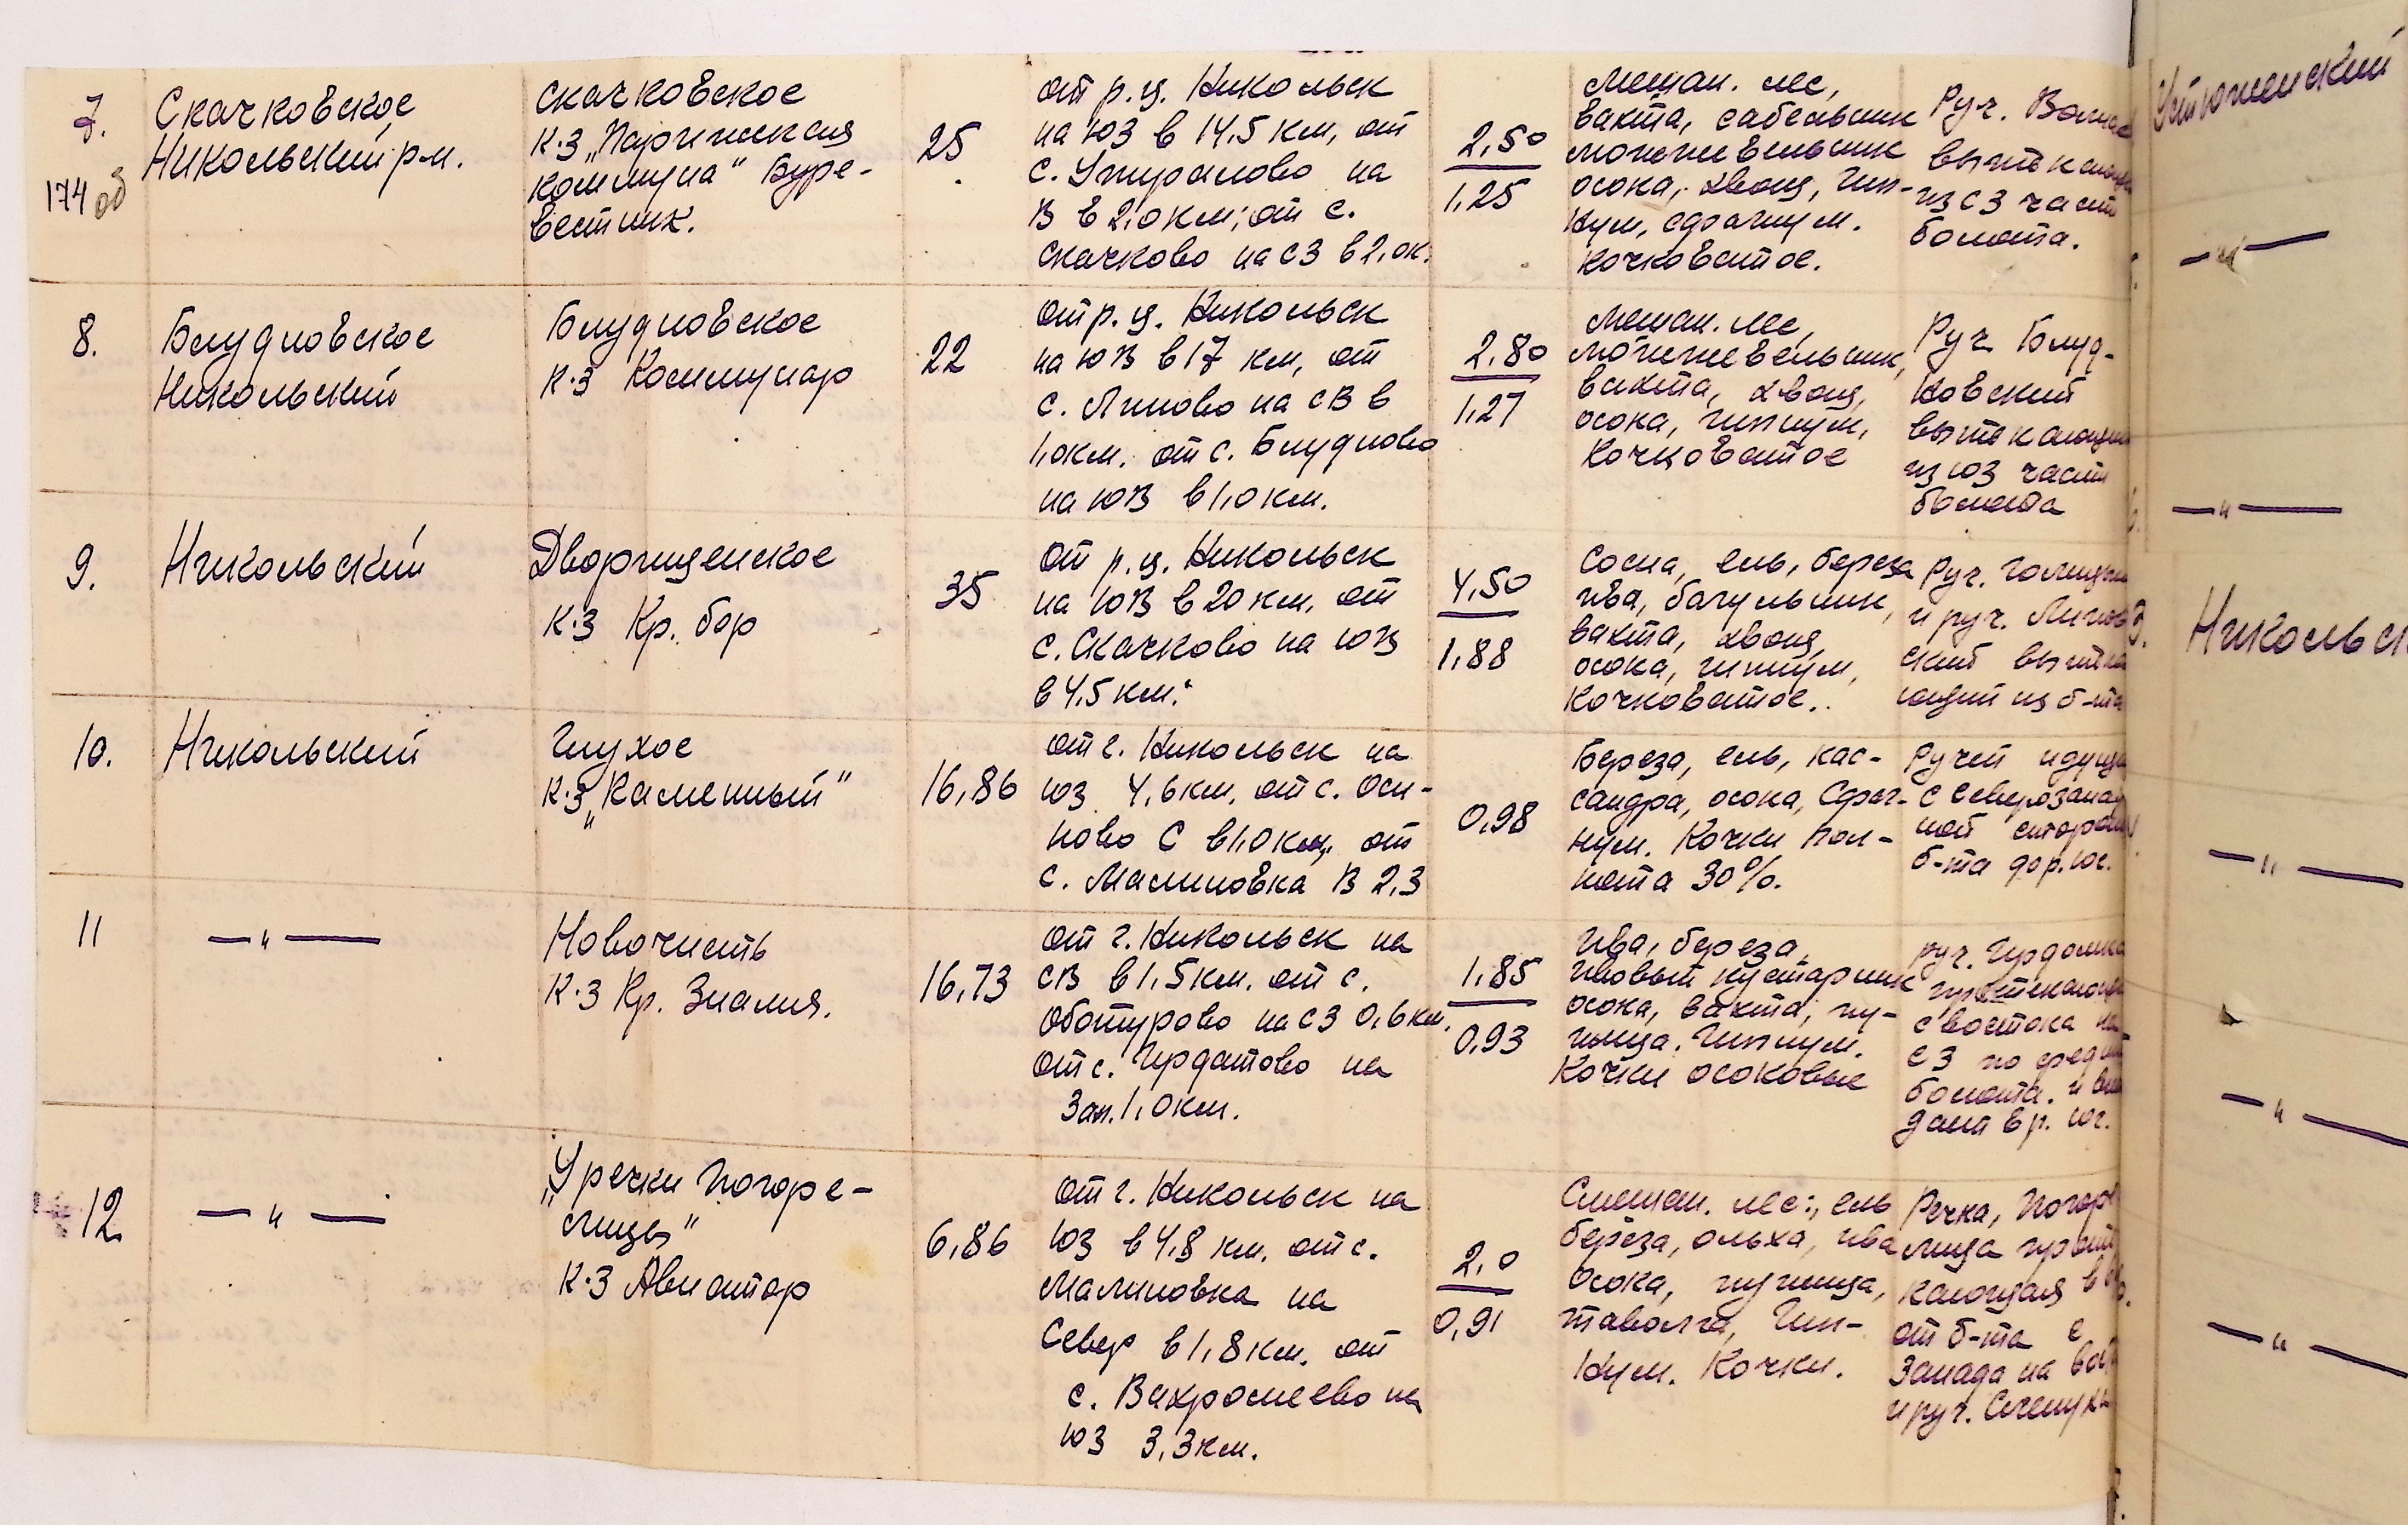 7.
174 об
Скачковское
Никольский р-н.
Скачковское
К-з „Парижская
коммуна" Буре-
вестник.
25
от р.ц. Никольск
на ЮЗ в 14,5 км, от
с. Упираново на
В в 2,0 км; от с.
Скачково на СЗ в 2,0 к.
2,50
1,25
Мешан. лес,
вахта, сабельник
можжевельник
осока, хвощ, гип-
нум, сфагнум.
Кочковатое.
Руч.
из СЗ части
болота.
8.
Блудновское
Никольский
Блудновское
к-з Коммунар
22
от р.ц. Никольск
на ЮВ в 17 км, от
с. Липово на СВ в
1,0 км. от с. Блудново
на ЮВ в 1,0 км.
2,80
1,27
Мешан. лес,
можжевельник,
вахта, хвощ,
осока, гипнум,
Кочковатое
Руч. Блуд-
новский
вытекающий
из ЮЗ части
болота
9.
Никольский
Дворищенское
к-з Кр. бор
35
от р.ц. Никольск
на ЮВ в 20 км, от
с. Скачково на ЮВ
в 4,5 км.
4,50
1,88
Сосна, ель, береза
ива, багульник,
вахта, хвощ,
осока, гипнум,
Кочковатое.
Руч.
и руч. Липов
ский вытека
ющий из б-та
10.
Никольский
Глухое
к-з „Каменный"
16,86
от г. Никольск на
ЮЗ 4,6 км, от с. Оси-
ново С в 1,0 км, от
с. Малиновка В 2,3
0,98
Береза, ель, кас-
сандра, осока, Сфаг-
нум. Кочки пол-
нота 30%.
Ручей идущий
с Северозапад
ной стороны
б-та до р. Юг.
11
—〃—
Новочисть
К-з Кр. Знамя.
16,73
от г. Никольск на
СВ в 1,5 км. от с.
Обатурово на СЗ 0,6 км.
от с. Ирданово на
Зап. 1,0 км.
1,85
0,93
Ива, береза,
ивовый кустарник
осока, вахта, пу-
шица. Гипнум.
Кочки осоковые
руч.
протекающий
с востока на
СЗ по средине
болота. и впа
дает в р. Юг.
12
—〃—
„У речки Погоре-
лицы"
К-з Авиатор
6,86
от г. Никольск на
ЮЗ в 4,8 км. от с.
Малиновка на
Север в 1,8 км. от
с. Вахромеево на
ЮЗ 3,3 км.
2,0
0,91
Смешан. лес:, ель
береза, ольха, ива
Осока, пушица,
таволга, Гип-
нум. Кочки.
Речка, Погоре
лица проте
кающая в
от б-та с
Запада на вос
и руч.
Устюженский
—〃—
—〃—
Никольск
—〃—
—〃—
—〃—